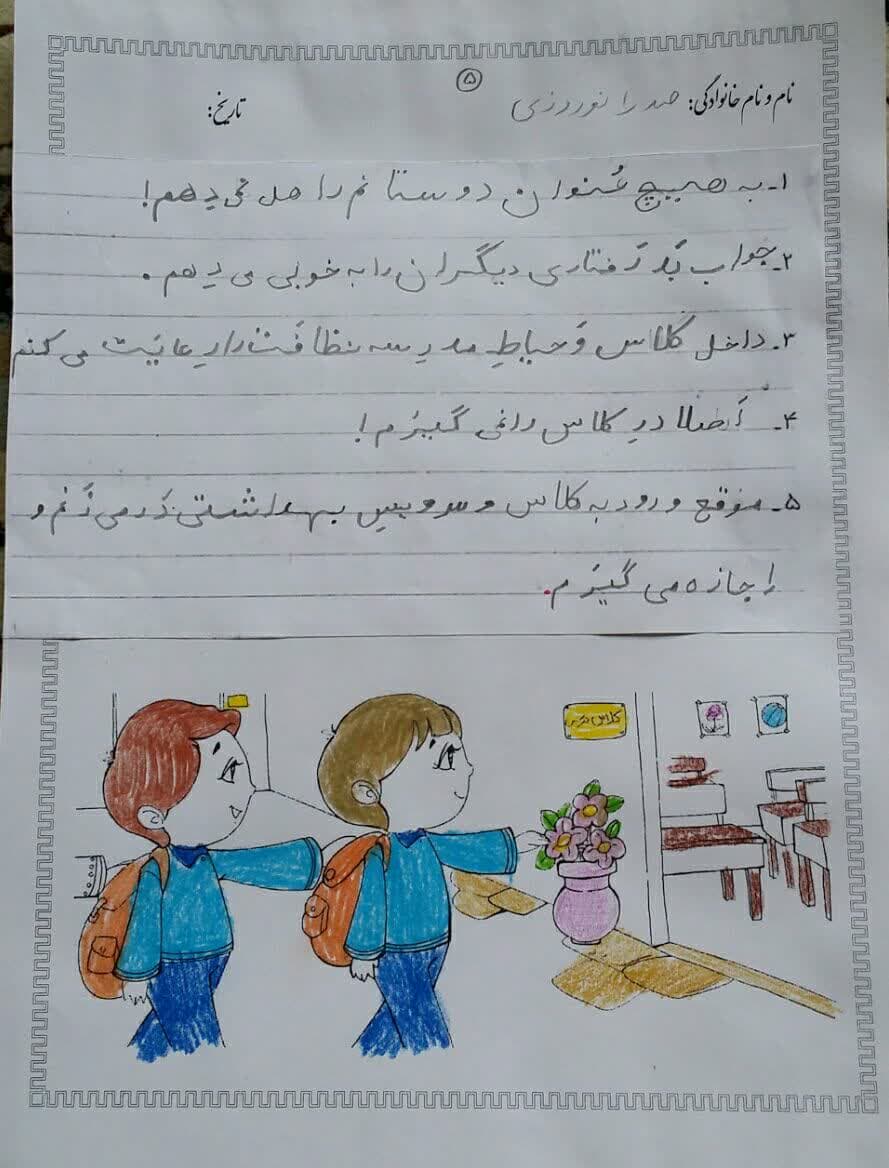 ۵
نام و نام خانوادگی: صدرا نوروزی
تاریخ:
۱ـ به هیچ عُنوان دوستانم را هل نمی دهم!
۲ـ جواب بَد رَفتاری دیگران را به خوبی می دهم.
۳ـ داخل کلاس وَ حیاطِ مدرسه نظافَت را رِعایَت می کنم
۴ـ اَصلا درِ کلاس را نمی گیرَم!
۵ـ موقع ورود به کلاس و سرویس بهداشتی دَر می زَنم و
اجازه می گیرَم.
کلاس